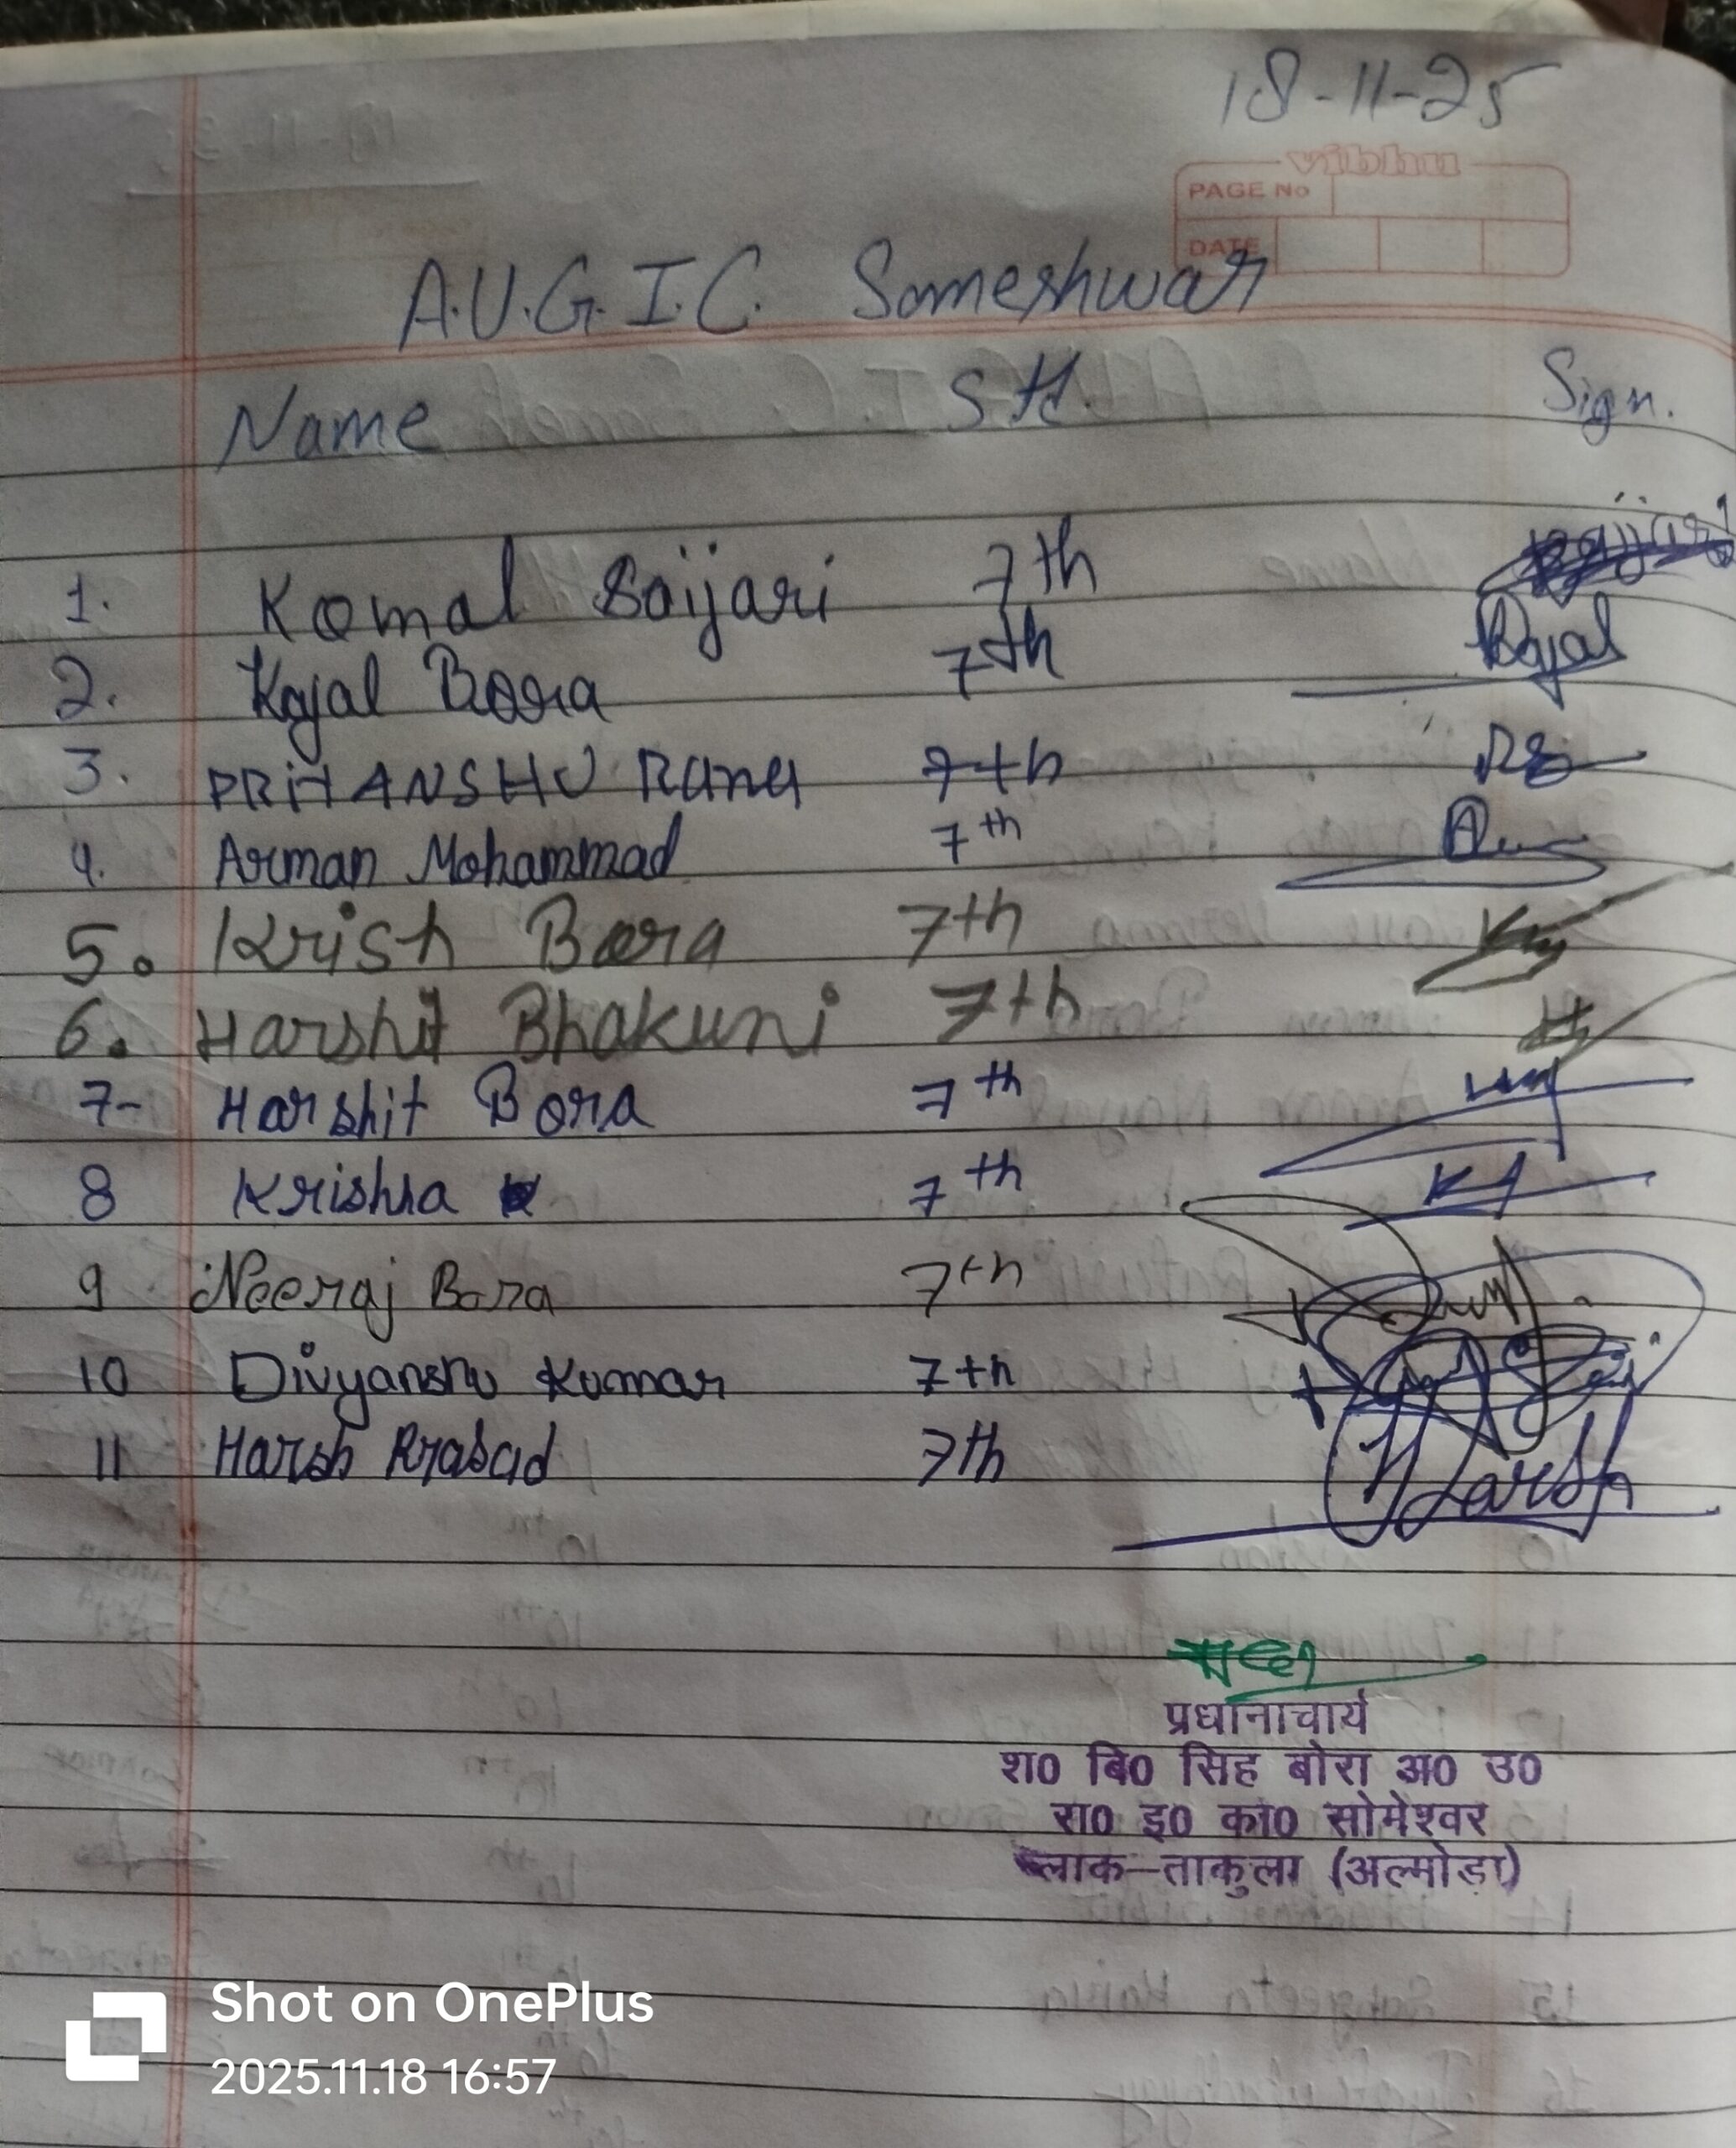 18-11-25
vibhu
PAGE No
DATE
A.U.G.I.C. Someshwar
Name Std. Sign.
1. Komal Baijari 7th
2. Kajal Bora 7th Kajal
3. PRIYANSHU Rana 7th
4. Arman Mohammad 7th
5. Krish Bora 7th
6. Harshit Bhakuni 7th
7- Harshit Bora 7th
8 Krishna 7th
9 Neeraj Bora 7th
10 Divyanshu Kumar 7th
11 Harsh Prasad 7th Harsh
प्रधानाचार्य
श0 बि0 सिंह बोरा अ0 उ0
रा0 इ0 का0 सोमेश्वर
ब्लाक–ताकुला (अल्मोडा)
Shot on OnePlus
2025.11.18 16:57